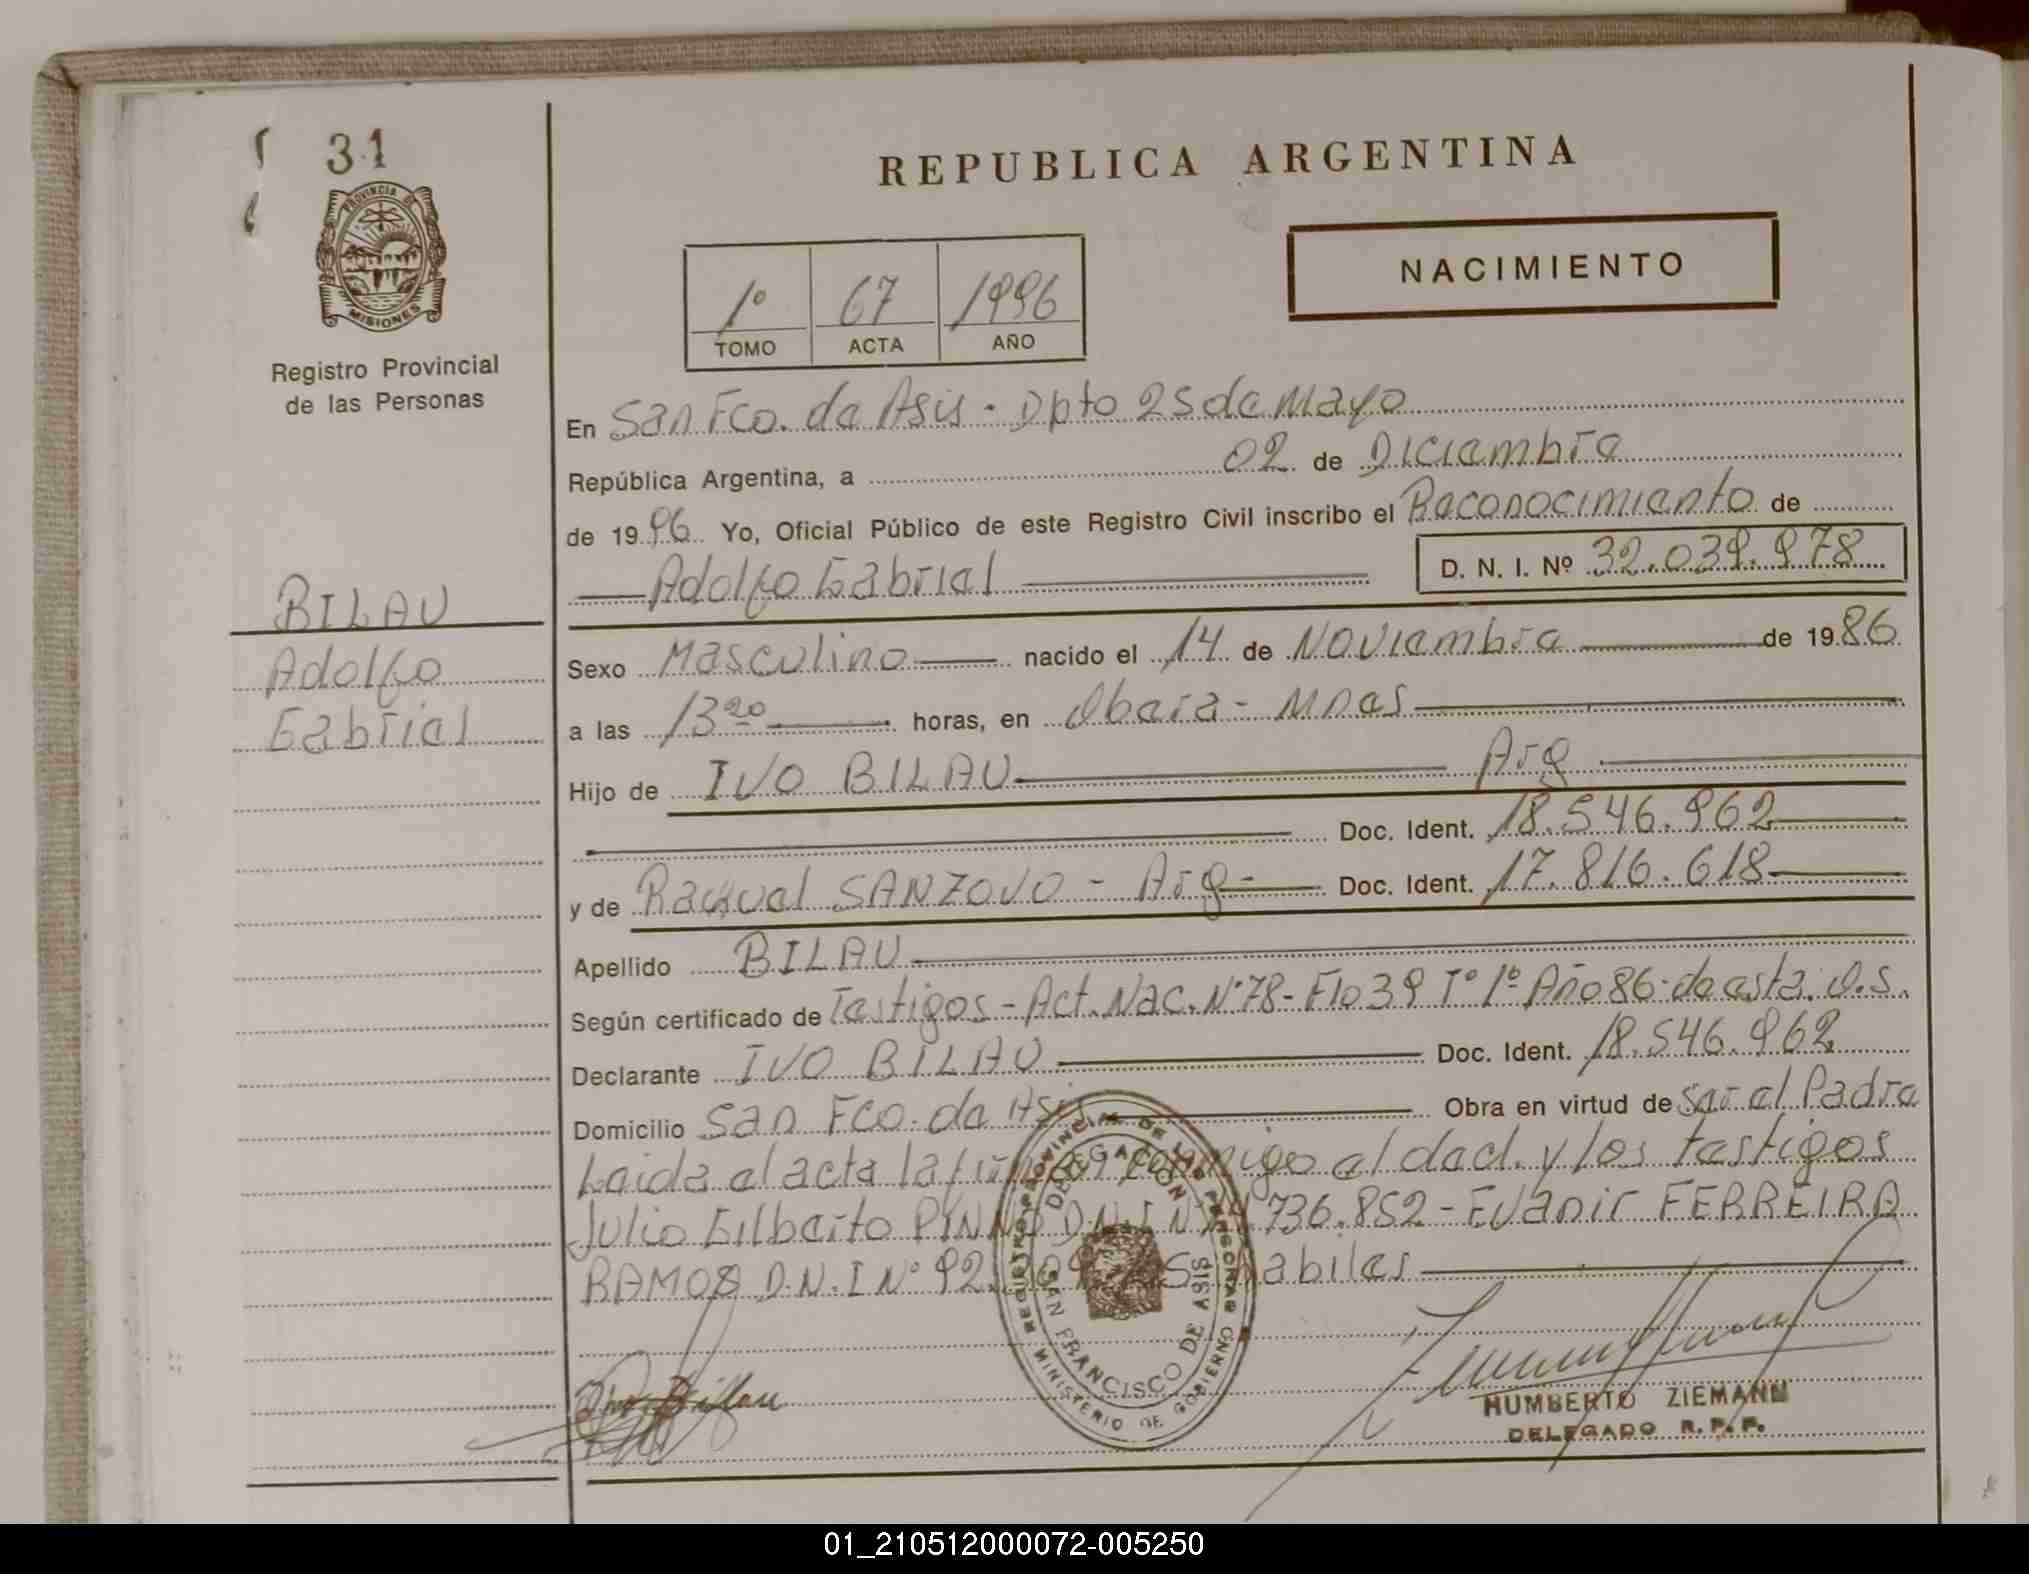 31
PROVINCIA DE
MISIONES
Registro Provincial
de las Personas
BILAU
Adolfo
Gabriel
REPUBLICA ARGENTINA
NACIMIENTO
1º 67 1996
TOMO ACTA AÑO
En San Fco. de Asis - Dpto 25 de Mayo
República Argentina, a 02 de Diciembre
de 1996 Yo, Oficial Público de este Registro Civil inscribo el Reconocimiento de
Adolfo Gabriel D. N. I. Nº 32.039.978
Sexo Masculino nacido el 14 de Noviembre de 1986
a las 13 20 horas, en Obera - Mnes
Hijo de IVO BILAU Arg
Doc. Ident. 18.546.962
y de Raquel SANZOVO - Arg - Doc. Ident. 17.816.618
Apellido BILAU
Según certificado de Testigos - Act. Nac. Nº 78 - Flo 39 Tº 1º Año 86 - de esta. O.S.
Declarante IVO BILAU Doc. Ident. 18.546.962
Domicilio San Fco. de Asis Obra en virtud de Ser el Padre
Leida el acta la firman conmigo el decl. y los testigos
Julio Gilberto D.N.I Nº 736.852 - Evanir FERREIRA
RAMOS D.N.I Nº 92. habiles
REGISTRO PROVINCIAL DE LAS PERSONAS
MINISTERIO DE GOBIERNO
DELEGACION
SAN FRANCISCO DE ASIS
HUMBERTO ZIEMANN
DELEGADO R. P. P.
01_210512000072-005250